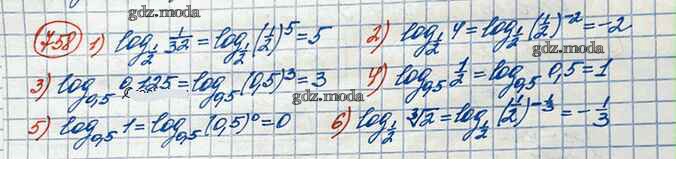 gdz.moda
758 1) log_{1/2} 1/32 = log_{1/2} (1/2)^5 = 5 2) log_{1/2} 4 = log_{1/2} (1/2)^{-2} = -2
3) log_{0,5} 0,125 = log_{0,5} (0,5)^3 = 3 4) log_{0,5} 1/2 = log_{0,5} 0,5 = 1
gdz.moda gdz.moda
5) log_{0,5} 1 = log_{0,5} (0,5)^0 = 0 6) log_{1/2} ∛2 = log_{1/2} (1/2)^{-1/3} = -1/3
gdz.moda